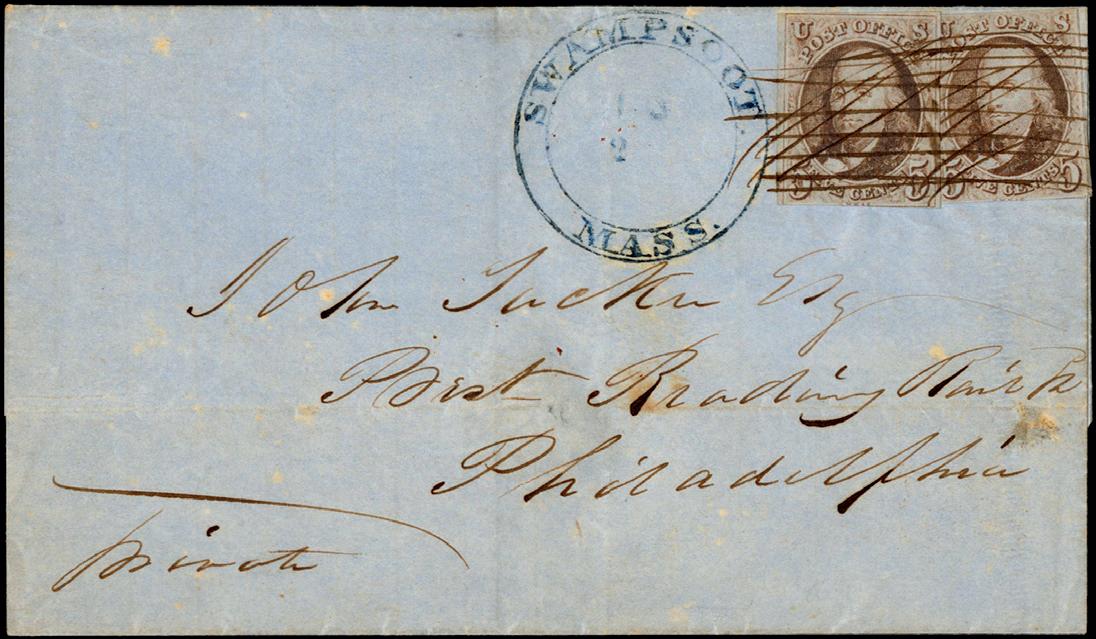 SWAMPSCOT.
MASS.
U S
POST OFFICE
FIVE CENTS
5 5
U S
POST OFFICE
FIVE CENTS
5 5
John Tucker Esq
Prest Reading Rail R
Philadelphia
private